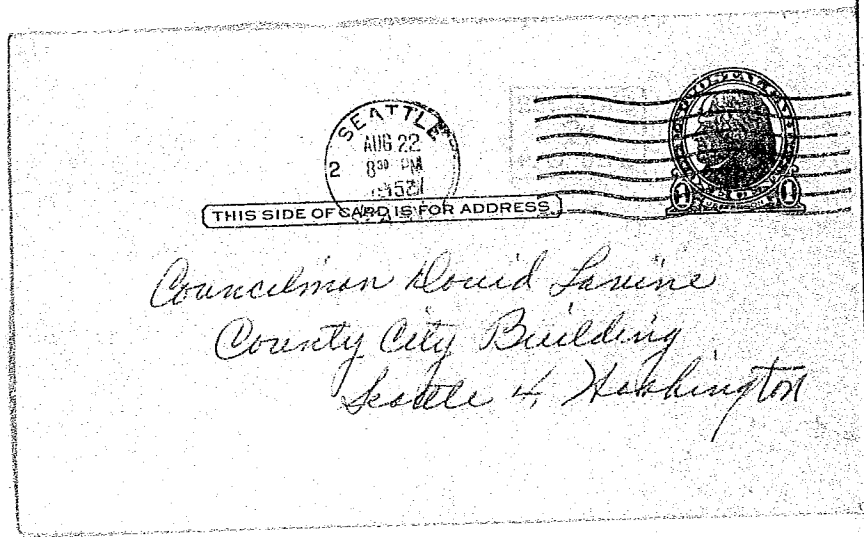 SEATTLE
AUG 22
8 30 PM
2
THIS SIDE OF CARD IS FOR ADDRESS
Councilman David Lavine
County City Building
Seattle 4, Washington